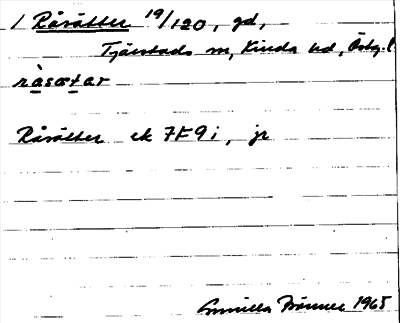 1 Råsätter 19/120, gd,
Tjärstads sn, Kinda hd, Östg. l.
ràsætar
Råsätter ek 7F9i, jr
Gunilla 1965